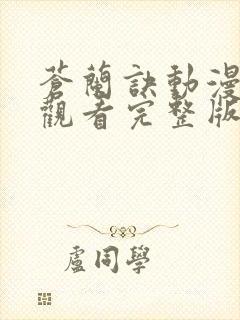 蒼蘭訣動漫
觀看完整版
盧同學